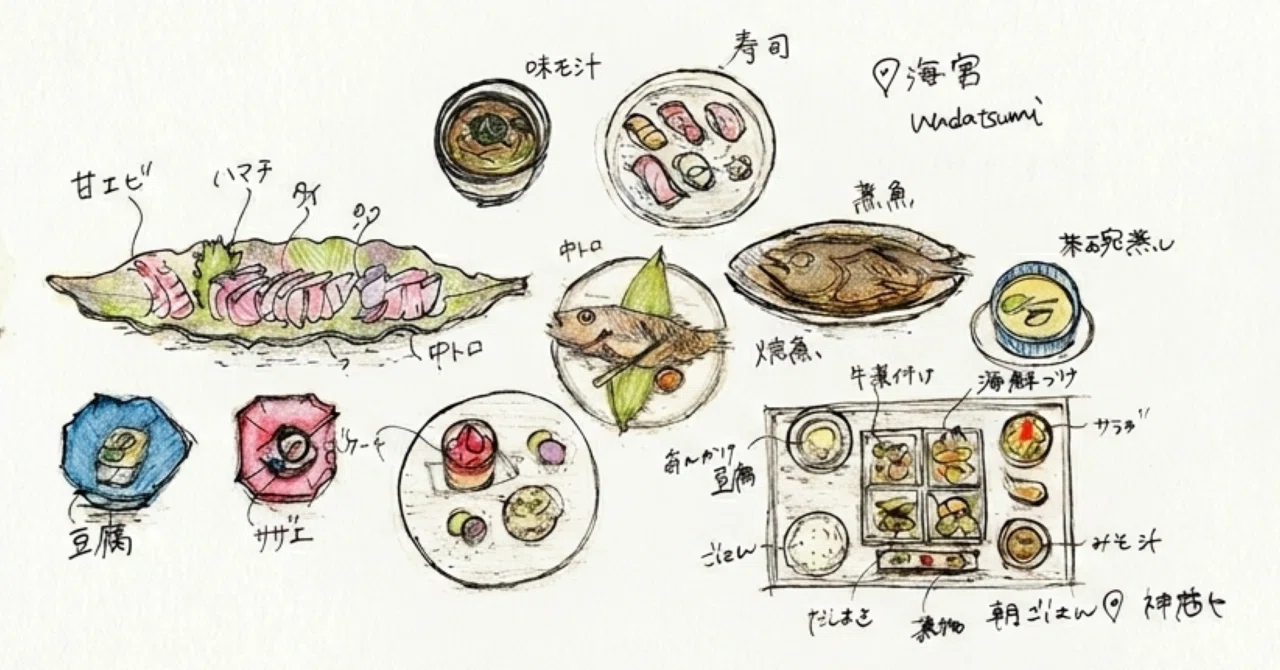 寿司
味モ汁
海宮
Wadatsumi
甘エビ
ハマチ
タイ
煮魚
茶碗蒸し
中トロ
中トロ
焼魚、
牛煮付け
海鮮づけ
サラダ
ケーキ
あんかけ
豆腐
豆腐
サザエ
ごはん
みそ汁
だしまき
朝ごはん